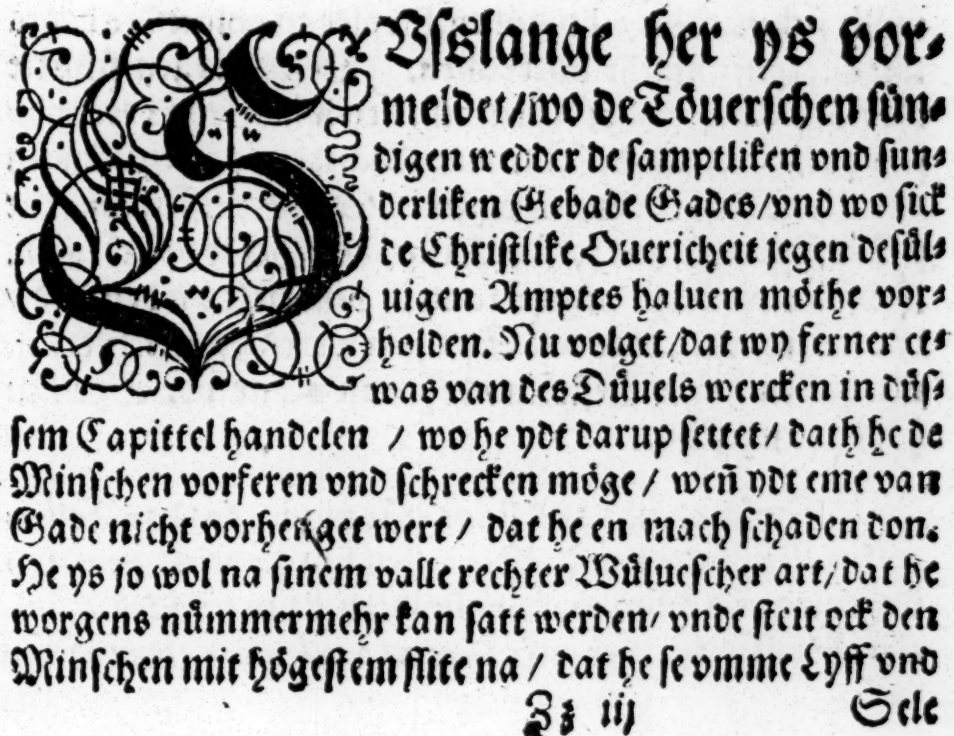 SVſslange her ys vor⸗
meldet / wo de Toͤuerſchen ſuͤn⸗
digen wedder de ſamptliken vnd ſun⸗
derliken Gebade Gades / vnd wo ſick
de Chriſtlike Ouericheit jegen deſuͤl⸗
uigen Amptes haluen moͤthe vor⸗
holden. Nu volget / dat wy ferner et⸗
was van des Duͤuels wercken in duͤſ⸗
ſem Capittel handelen / wo he ydt darup ſettet / dath he de
Minſchen vorferen vnd ſchrecken moͤge / weñ ydt eme van
Gade nicht vorhenget wert / dat he en mach ſchaden don.
He ys jo wol na ſinem valle rechter Wuͤlueſcher art / dat he
worgens nuͤmmermehr kan ſatt werden / vnde ſteit ock den
Minſchen mit hoͤgeſtem flite na / dat he ſe vmme Lyff vnd
Zz iij Sele